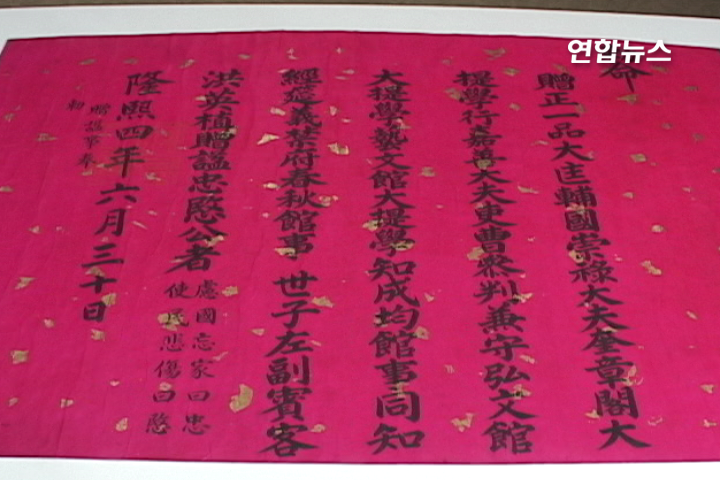 연합뉴스
命
贈正一品大匡輔國崇祿大夫奎章閣大
提學行嘉善大夫吏曹參判兼守弘文館
大提學藝文館大提學知成均館事同知
經筵義禁府春秋館事 世子左副賓客
洪英植贈諡忠愍公者
慮國忘家曰忠
使民悲傷曰愍
隆熙四年六月三十日
贈諡事奉
勅